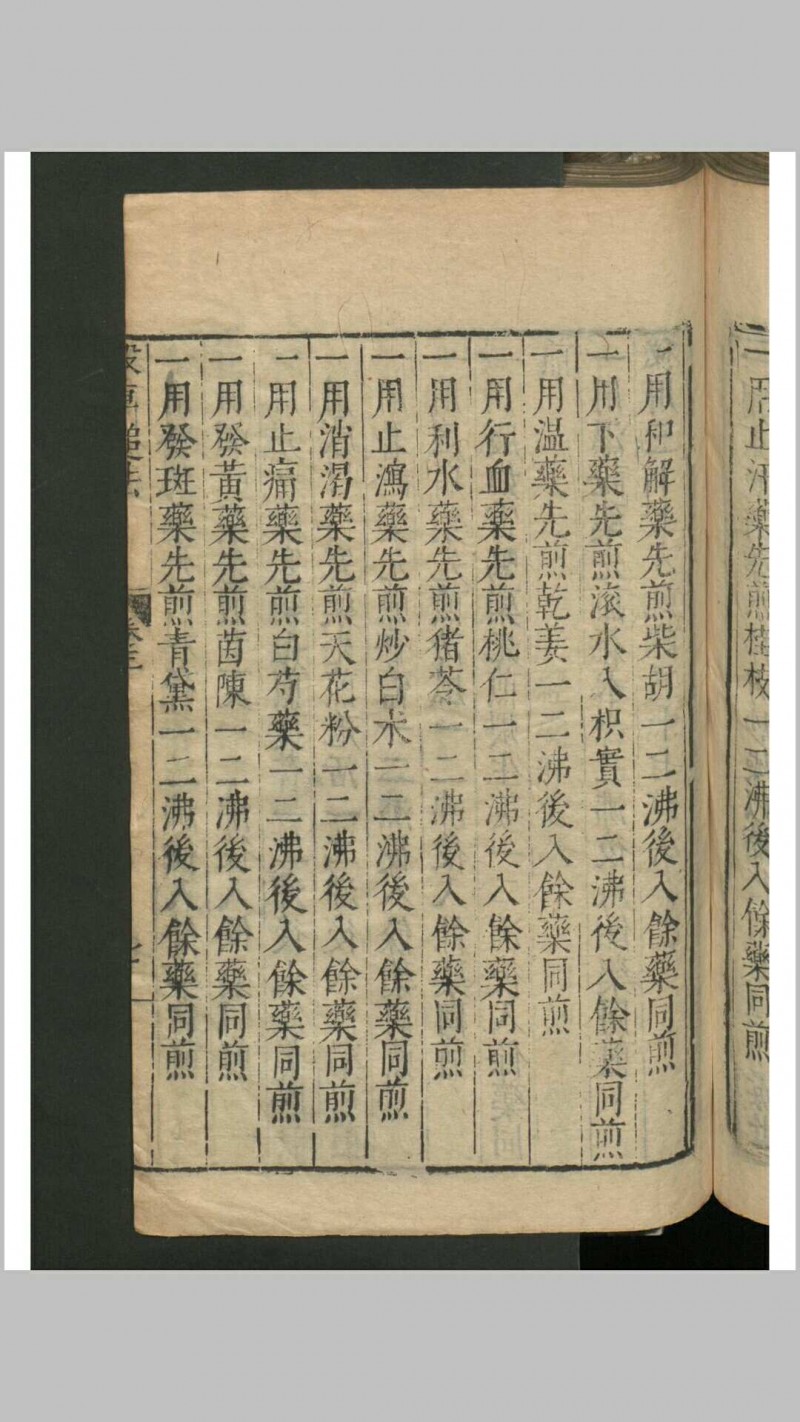 一用止汗藥先煎桂枝一二沸後入餘藥同煎
一用和解藥先煎柴胡一二沸後入餘藥同煎
一用下藥先煎滾水入枳實一二沸後入餘藥同煎
一用温藥先煎乾姜一二沸後入餘藥同煎
一用行血藥先煎桃仁一二沸後入餘藥同煎
一用利水藥先煎猪苓一二沸後入餘藥同煎
一用止瀉藥先煎炒白术一二沸後入餘藥同煎
一用消渴藥先煎天花粉一二沸後入餘藥同煎
一用止痛藥先煎白芍藥一二沸後入餘藥同煎
一用發黃藥先煎茵陳一二沸後入餘藥同煎
一用發斑藥先煎青黛一二沸後入餘藥同煎